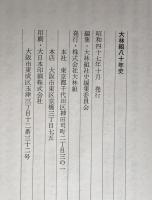 大林組八十年史
昭和四十七年十月 発行
編集・大林組社史編集委員会
発行・株式会社大林組
本社 東京都千代田区神田司町二丁目三の一
本店 大阪市東区京橋三丁目七五
印刷・大日本印刷株式会社
大阪市東成区玉津三丁目十二番三十二号